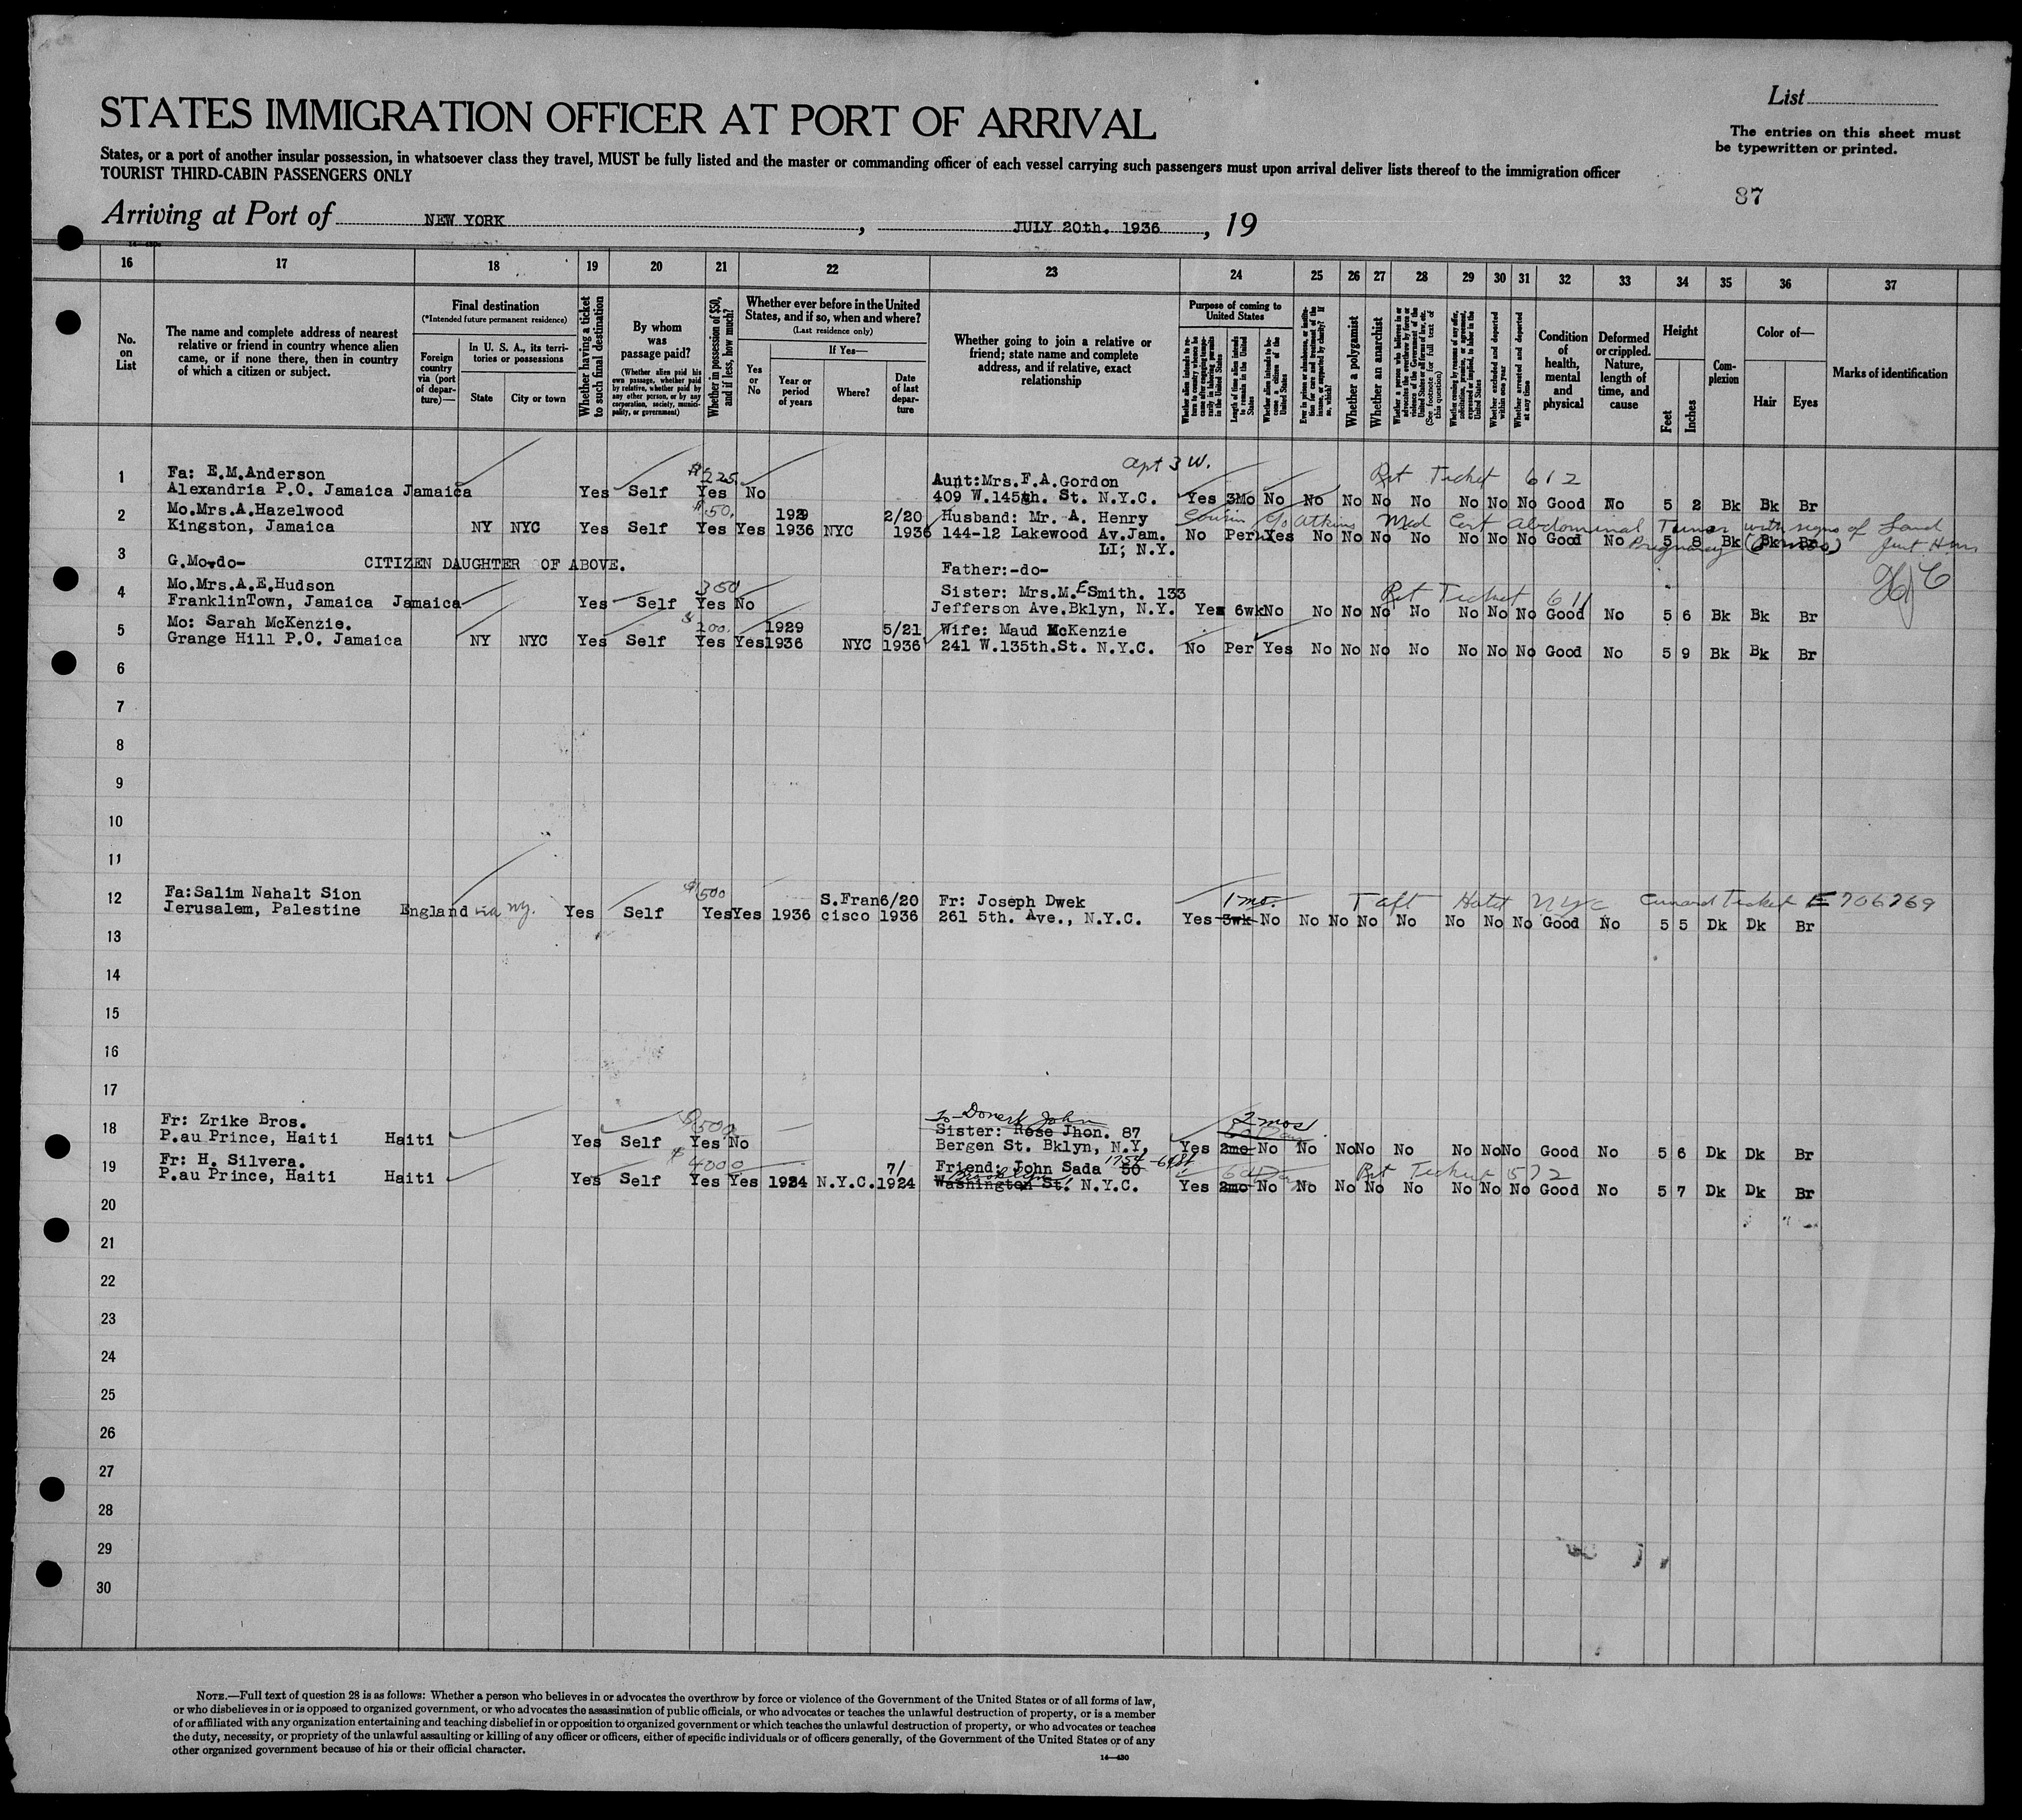 List
STATES IMMIGRATION OFFICER AT PORT OF ARRIVAL
The entries on this sheet must
be typewritten or printed.
States, or a port of another insular possession, in whatsoever class they travel, MUST be fully listed and the master or commanding officer of each vessel carrying such passengers must upon arrival deliver lists thereof to the immigration officer
TOURIST THIRD-CABIN PASSENGERS ONLY
87
Arriving at Port of NEW YORK, JULY 20th. 1936, 19
16 17 18 19 20 21 22 23 24 25 26 27 28 29 30 31 32 33 34 35 36 37
No. on List
The name and complete address of nearest
relative or friend in country whence alien
came, or if none there, then in country
of which a citizen or subject.
Final destination
(*Intended future permanent residence)
Foreign country via (port of departure)—
In U. S. A., its territories or possessions
State
City or town
Whether having a ticket to such final destination
By whom was passage paid?
(Whether alien paid his own passage, whether paid by relative, whether paid by any other person, or by any corporation, society, municipality, or government)
Whether in possession of $50, and if less, how much?
Whether ever before in the United
States, and if so, when and where?
(Last residence only)
Yes or No
If Yes—
Year or period of years
Where?
Date of last departure
Whether going to join a relative or
friend; state name and complete
address, and if relative, exact
relationship
Purpose of coming to United States
Length of time alien intends to remain in the United States
Whether alien intends to become a citizen of the United States
Whether a polygamist
Whether an anarchist
Whether excluded and deported within one year
Whether arrested and deported at any time
Condition of health, mental and physical
Deformed or crippled. Nature, length of time, and cause
Height
Feet
Inches
Complexion
Color of—
Hair
Eyes
Marks of identification
apt 3 W.
1 Fa: E.M.Anderson $225 Aunt:Mrs.F.A.Gordon Ret Ticket 612
Alexandria P.O. Jamaica Jamaica Yes Self Yes No 409 W.145th. St. N.Y.C. Yes 3Mo No No No No No No No No Good No 5 2 Bk Bk Br
2 Mo.Mrs.A.Hazelwood $50. 1929 2/20 Husband: Mr. A. Henry Cousin Atkins Med Cert Abdominal Tumor with signs of
Kingston, Jamaica NY NYC Yes Self Yes Yes 1936 NYC 1936 144-12 Lakewood Av.Jam. No Per Yes No No No No No No No Good No 5 8 Bk Bk Br
Pregnancy
LI; N.Y.
3 G.Mo-do- CITIZEN DAUGHTER OF ABOVE. Father:-do-
4 Mo.Mrs.A.E.Hudson 350 Sister: Mrs.M.E Smith. 133 Ret Ticket 611
FranklinTown, Jamaica Jamaica Yes Self Yes No Jefferson Ave.Bklyn, N.Y. Yes 6wk No No No No No No No No Good No 5 6 Bk Bk Br
5 Mo: Sarah McKenzie. $200. 1929 5/21 Wife: Maud McKenzie
Grange Hill P.O. Jamaica NY NYC Yes Self Yes Yes 1936 NYC 1936 241 W.135th.St. N.Y.C. No Per Yes No No No No No No No Good No 5 9 Bk Bk Br
6
7
8
9
10
11
12 Fa:Salim Nahalt Sion $500 S.Fran 6/20 Fr: Joseph Dwek 1 mo. Taft Hotel NYC Cunard Ticket E 706769
Jerusalem, Palestine England via NY. Yes Self Yes Yes 1936 cisco 1936 261 5th. Ave., N.Y.C. Yes 3wk No No No No No No No No Good No 5 5 Dk Dk Br
13
14
15
16
17
John 2 mos
18 Fr: Zrike Bros. $500 Sister: Rose Jhon. 87
P.au Prince, Haiti Haiti Yes Self Yes No Bergen St. Bklyn, N.Y. Yes 2mo No No No No No No No No Good No 5 6 Dk Dk Br
19 Fr: H. Silvera. $4000 7/ Friend: John Sada 50 1754 Ret Ticket 572
P.au Prince, Haiti Haiti Yes Self Yes Yes 1924 N.Y.C. 1924 Washington St. N.Y.C. Yes 2mo No No No No No No No No Good No 5 7 Dk Dk Br
20
21
22
23
24
25
26
27
28
29
30
NOTE.—Full text of question 28 is as follows: Whether a person who believes in or advocates the overthrow by force or violence of the Government of the United States or of all forms of law,
or who disbelieves in or is opposed to organized government, or who advocates the assassination of public officials, or who advocates or teaches the unlawful destruction of property, or is a member
of or affiliated with any organization entertaining and teaching disbelief in or opposition to organized government or which teaches the unlawful destruction of property, or who advocates or teaches
the duty, necessity, or propriety of the unlawful assaulting or killing of any officer or officers, either of specific individuals or of officers generally, of the Government of the United States or of any
other organized government because of his or their official character.
14—430